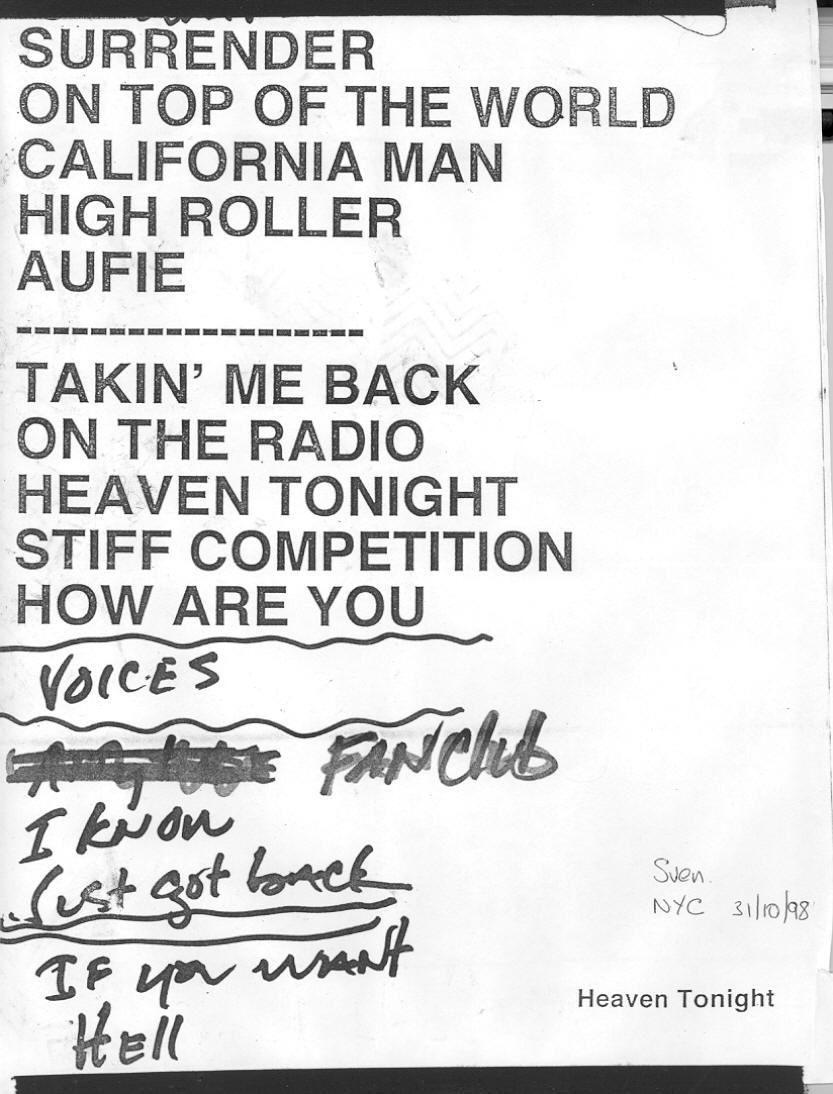 SURRENDER
ON TOP OF THE WORLD
CALIFORNIA MAN
HIGH ROLLER
AUFIE
-------------------
TAKIN' ME BACK
ON THE RADIO
HEAVEN TONIGHT
STIFF COMPETITION
HOW ARE YOU
VOICES
FANClub
I KNOW
Just got back
Sven.
NYC 31/10/98
IF you WANT
HEll
Heaven Tonight